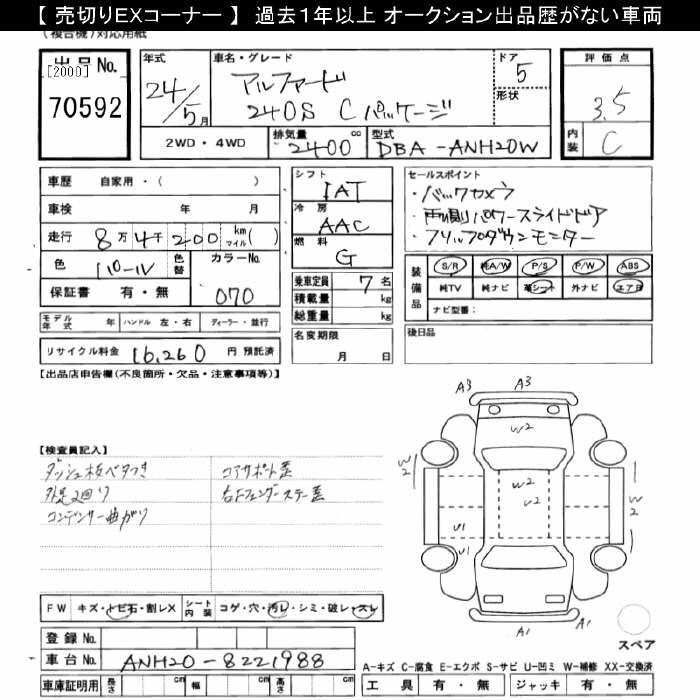 【 売切りEXコーナー 】 過去1年以上 オークション出品歴がない車両
(複合機)対応用紙
出品No.
[2000]
70592
年式
24/5月
車名・グレード
アルファード
240S Cパッケージ
ドア
5
形状
評価点
3.5
内装
C
2WD・4WD
排気量
2400
cc
型式
DBA-ANH20W
車歴 自家用・( )
車検 年 月
走行 8万4千200 km マイル( )
色 パール 色替
カラーNo.
070
保証書 有・無
モデル年式 年 ハンドル 左・右 ディーラー・並行
リサイクル料金 16,260 円 預託済
シフト
IAT
冷房
AAC
燃料
G
乗車定員 7 名
積載量 kg
総重量 kg
名変期限
月 日
セールスポイント
・バックカメラ
・両側パワースライドドア
・フリップダウンモニター
装備品
S/R 純A/W P/S P/W ABS
純TV 純ナビ 革シート 外ナビ エアB
ナビ型番:
後日品
【出品店申告欄(不良箇所・欠品・注意事項等)】
【検査員記入】
ダッシュ板ベタつき
コアサポート歪
外足2回り
右Fフェンダーステー歪
コンデンサー曲がり
A3 A3
W2
W2
W2
U2
W2
U1
U1
A1 A1
スペア
FW キズ・トビ石・割レX
シート内装 コゲ・穴・汚レ・シミ・破レ・スレ
登録No.
車台No. ANH20-8221988
車庫証明用 長さ cm 幅 cm 高さ cm
A-キズ C-腐食 E-エクボ S-サビ U-凹ミ W-補修 XX-交換済
工具 有・無 ジャッキ 有・無